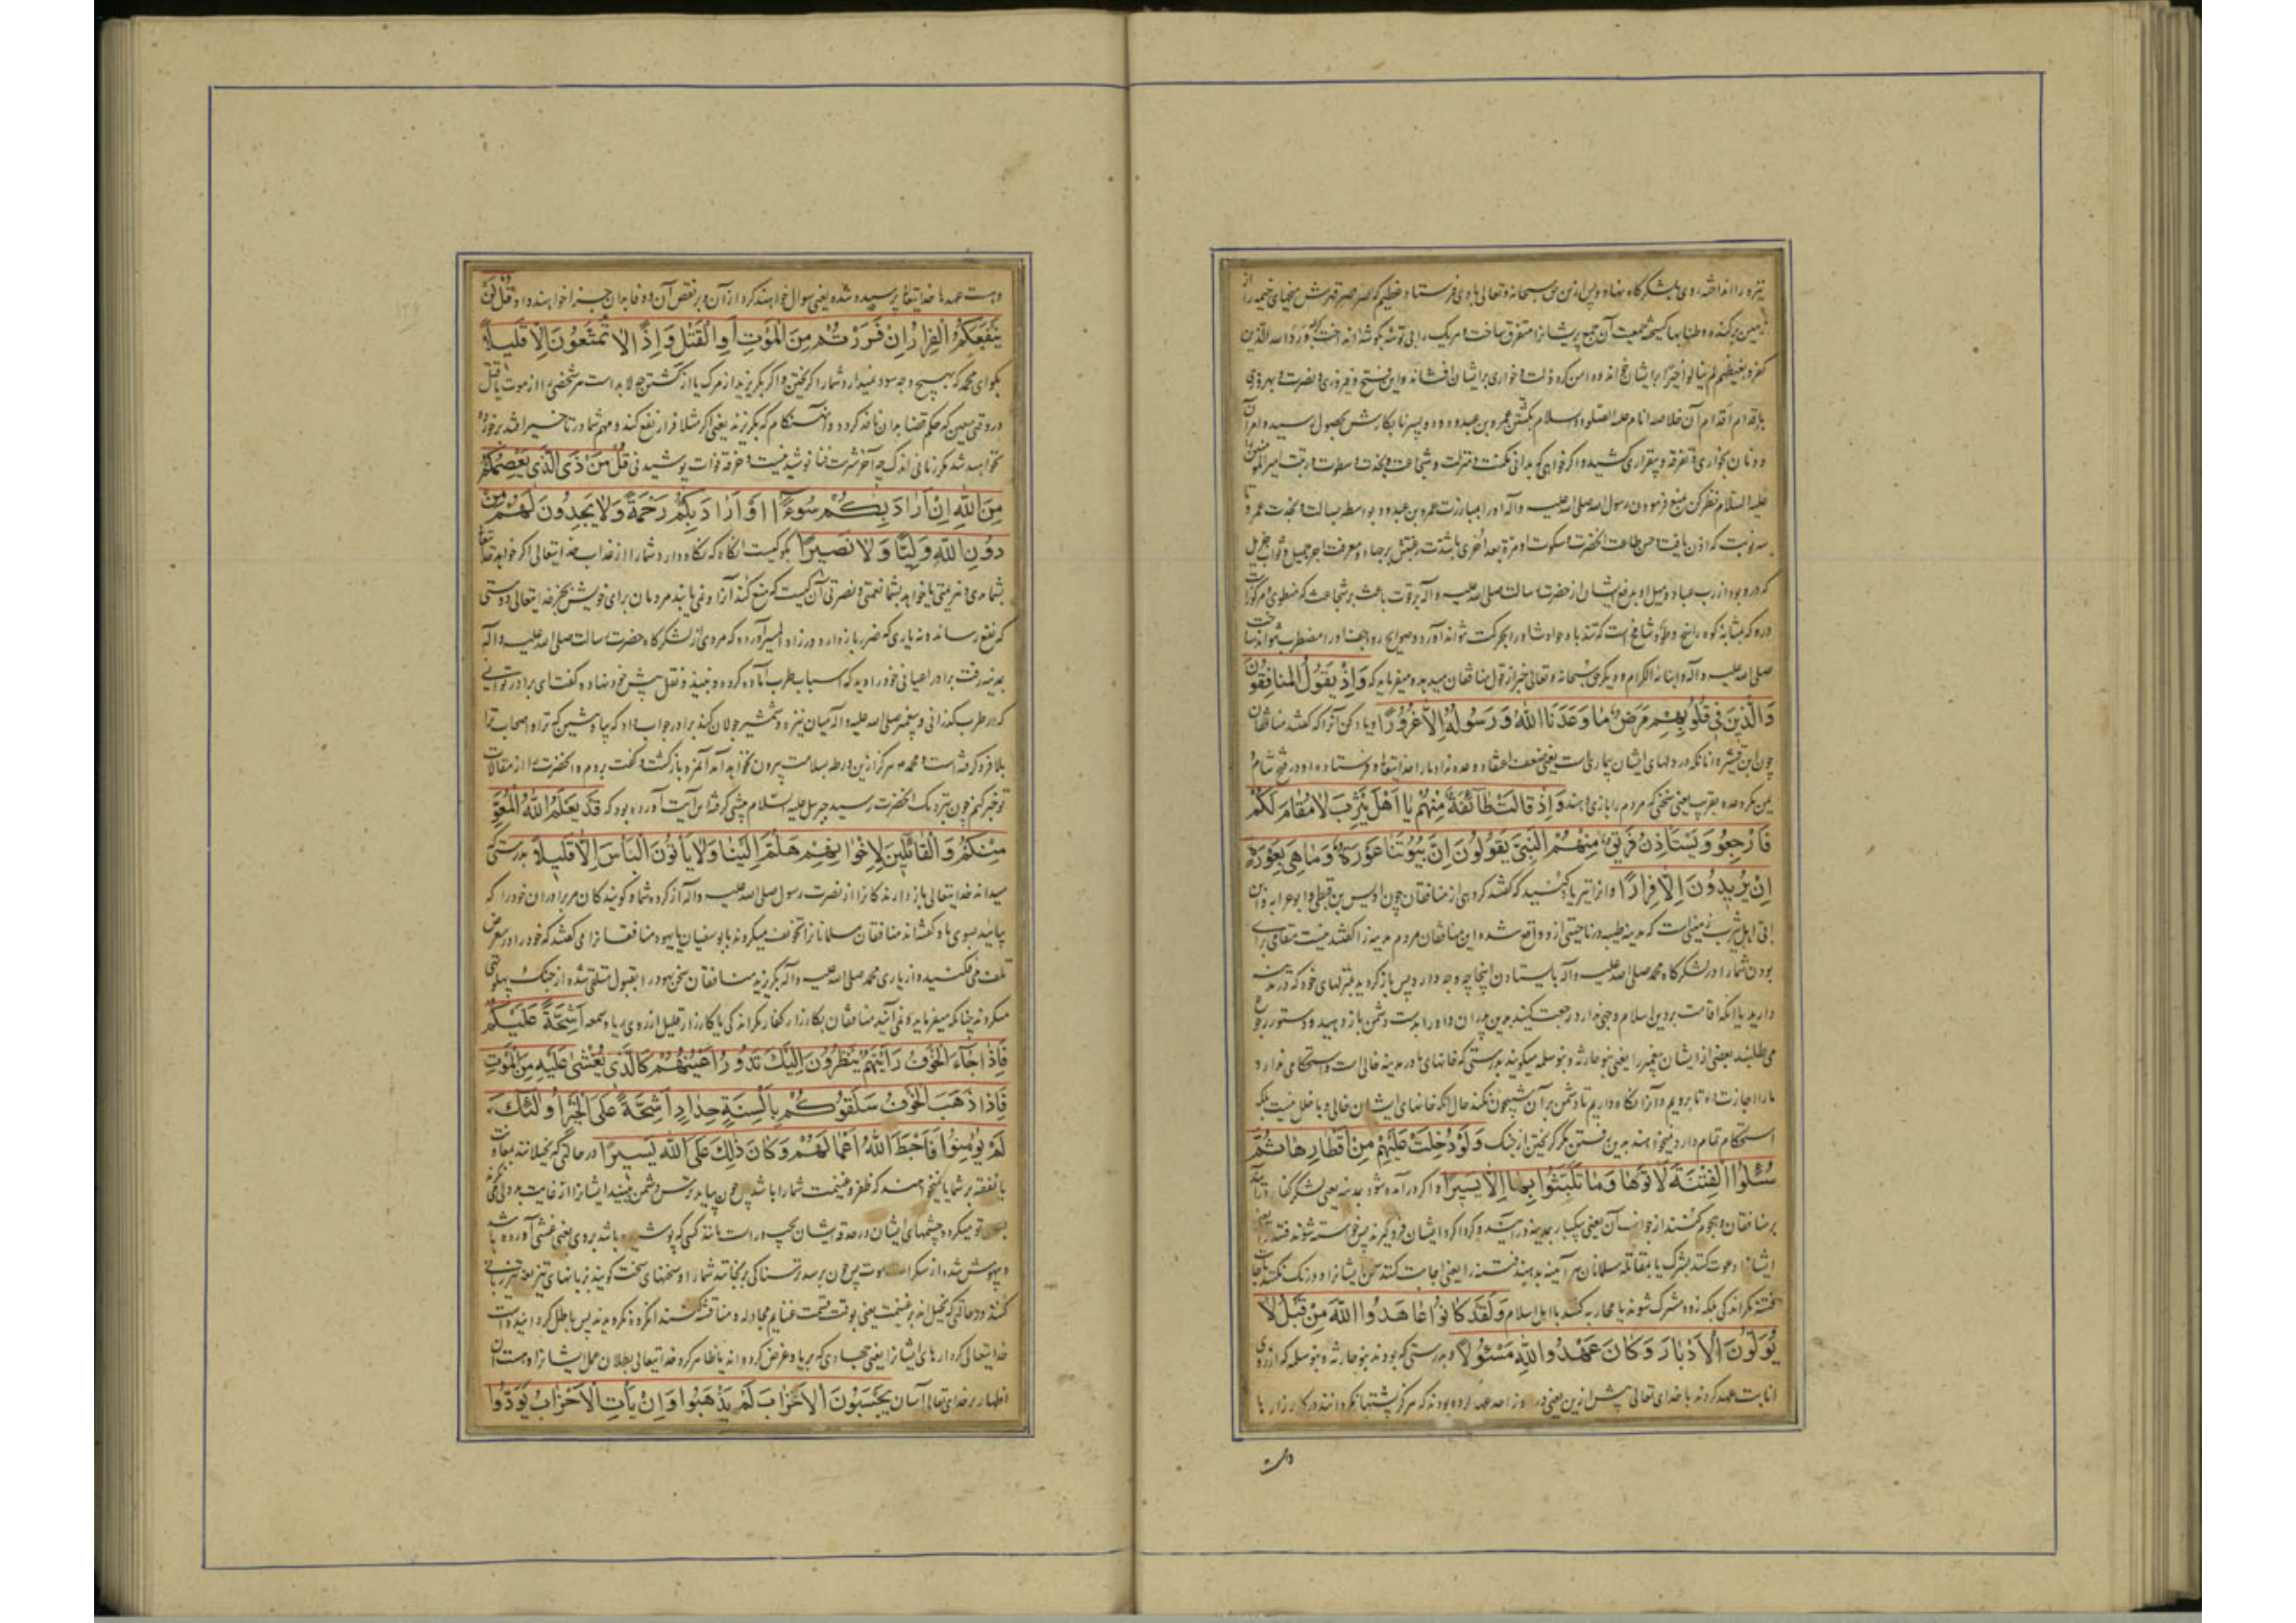 نیزه را انداخته روی بلشکرگاه نهاد و پس ازین حق سبحانه و تعالی بادی فرستاد عظیم که صرصر قهرش میخهای خیمه را از
زمین برکنده و طنابها کسیخته جمعیت آن جمع پریشانرا متفرق ساخت و هر یک را بی توشه بگوشه انداخت و رد الله الذین
کفروا بغیظهم لم ینالوا خیرا برایشان خوانده و دامن کرد ذلت و خواری بر ایشان افشاند و این فتح و فیروزی و نصرت و بهروزی
باقدام اقدام آن خلاصه انام علیه الصلوه و السلام بکشتن عمرو بن عبدود و دو پسر نابکارش بحصول رسید و امر آن
دونان بخواری و تفرقه و بیقراری کشید و اگر خواهی که بدانی مکنت و منزلت و شجاعت و نجدت و سطوت و رتبت امیرالمؤمنین
علیه السلام نظر کن منع فرمودن رسول الله صلی الله علیه و آله او را بمبارزت عمرو بن عبدود بواسطه بسالت و نجدت عمرو تا
سه نوبت که اذن یافت حسن طاعت الحضرت و سکوت او مرة بعد اخری با شدت رغبتش بر جهاد و معرفت اجر جمیل و ثواب جزیل
که در و بود از رب عباد و میل او بدفع ایشان از حضرت رسالت صلی الله علیه و آله بر قوت باعث بر شجاعت که منطوی و مرکوزست
در و که بمثابه کوه راسخ و طود شامخ است که تندباد حوادث او را بحرکت نتواند آورد و صوایح رواجف او را مضطرب نتواند ساخت
صلی الله علیه و آله و ابنائه الکرام و دیگر حق سبحانه و تعالی خبر از قول منافقان میدهد و میفرماید که وَاِذْ یَقُولُ المُنافِقُونَ
وَالَّذینَ فی قُلُوبِهِمْ مَرَضٌ ما وَعَدَنَا اللّٰهُ وَرَسُولُهُ اِلّا غُرُورًا و یاد کن آنرا که گفتند منافقان
چون ابن قشیر و آنانکه در دلهای ایشان بیماریست یعنی ضعف اعتقاد وعده نداد ما را خدایتعالی و فرستاده او در فتح شام و
یمن مگر وعده بفریب یعنی سخنی که مردم را بازی دهند وَاِذْ قالَتْ طآئِفَةٌ مِنْهُمْ یا اَهْلَ یَثْرِبَ لا مُقامَ لَکُمْ
فَارْجِعُوا وَیَسْتَأْذِنُ فَریقٌ مِنْهُمُ النَّبِیَّ یَقُولُونَ اِنَّ بُیُوتَنا عَوْرَةٌ وَما هِیَ بِعَوْرَةٍ
اِنْ یُریدُونَ اِلّا فِرارًا و از آنتر یاد کنید که گفتند گروهی از منافقان چون اوس بن قیظی و ابوعرابه و
ای اهل یثرب زمینی است که مدینه طیبه در ناحیتی از و واقع شده این منافقان مردم مدینه را گفتند نیست مقامی برای
بودن شما را در لشکرگاه محمد صلی الله علیه و آله بایستادن اینجا چه وجه دارد پس باز گردید بمنزلهای خود که در مدینه
دارید یا انکه اقامت بر دین اسلام وجهی ندارد رجعت کنید بدین پدران و او را بدست دشمن باز دهید و دستور رجوع
می طلبند بعضی از ایشان پیغمبر را یعنی بنو حارثه و بنو سلمه میگویند بدرستی که خانهای ما در مدینه خالی است و استحکامی ندارد
ما را اجازت ده تا برویم و آنرا نگاه داریم تا دشمن بر آن شبیخون نکند حال انکه خانهای ایشان خالی و با خلل نیست بلکه
استحکام تمام دارد و نمیخواهند بدین رفتن مگر گریختن از جنگ وَلَوْ دُخِلَتْ عَلَیْهِمْ مِنْ اَقْطارِها ثُمَّ
سُئِلُوا الْفِتْنَةَ لَاٰتَوْها وَما تَلَبَّثُوا بِها اِلّا یَسیرًا و اگر درآمده شود بمدینه یعنی لشکر کفار درآیند
بر منافقان و هجوم کنند از جوانب آن یعنی بیکبار بمدینه درآیند و گرداگرد ایشان فرو گیرند پس خواسته شوند فتنه را یعنی
ایشانرا دعوت کنند بشرک یا بمقاتله مسلمانان هر آینه بدهند فتنه را یعنی اجابت کنند سخن ایشانرا و درنک نکنند باجابت
فتنه مگر اندکی بلکه زود مشرک شوند یا محاربه کنند با اهل اسلام وَلَقَدْ کانُوا عاهَدُوا اللّٰهَ مِنْ قَبْلُ لا
یُوَلُّونَ الْاَدْبارَ وَکانَ عَهْدُ اللّٰهِ مَسْئُولًا و بدرستی که بودند بنو حارثه و بنو سلمه که از روی
انابت عهد کردند با خدای تعالی پیش ازین یعنی در روز احد عهد کرده بودند که هرگز پشتها نگردانند در کارزار با
و هست عهد با خدایتعالی پرسیده شده یعنی سوال خواهند کرد از آن و بر نقض آن و وفا بدان جزا خواهند داد قُلْ لَنْ
یَنْفَعَکُمُ الْفِرارُ اِنْ فَرَرْتُمْ مِنَ الْمَوْتِ اَوِ الْقَتْلِ وَاِذًا لا تُمَتَّعُونَ اِلّا قَلیلًا
بگو ای محمد که بهیچ وجه سود نمیدارد شما را گریختن و اگر بگریزید از مرگ یا از کشتن چه لابد است هر شخصی را از موت یا قتل
در وقتی معین که حکم قضا بدان نافذ گردد و آنهنگام که بگریزند یعنی اگر مثلا فرار نفع کند و مهم شما در تاخیر افتد برخوردار
نخواهید شد مگر زمانی اندک چه آخر شربت فنا نوشید نیست و خرقه فوات پوشیدنی قُلْ مَنْ ذَی الَّذی یَعْصِمُکُمْ
مِنَ اللّٰهِ اِنْ اَرادَ بِکُمْ سُوءًا اَوْ اَرادَ بِکُمْ رَحْمَةً وَلا یَجِدُونَ لَهُمْ مِنْ
دُونِ اللّٰهِ وَلِیًّا وَلا نَصیرًا بگو کیست انکاه که نگاه دارد شما را از عذاب خدایتعالی اگر خواهد خدایتعالی
بشما بدی و هزیمتی یا خواهد بشما نعمتی و نصرتی آن کیست که منع کند آنرا و نمی یابند مردمان برای خویش بجز خدایتعالی دوستی
که نفع رساند و نه یاری که ضرر باز دارد در زاد المسیر آورده که مردی از لشکرگاه حضرت رسالت صلی الله علیه و آله
بمدینه رفت برادر اعیانی خود را دید که اسباب طرب آماده کرده و نبیذ و نقل پیش خود نهاده گفت ای برادر تو اینجا
که در طرب گذرانی و پیغمبر صلی الله علیه و آله میان نیزه و شمشیر جولان کند برادر جواب داد که بیا و بنشین که ترا و اصحاب ترا
بلا فرو گرفته است و محمد هرگز ازین ورطه بسلامت بیرون نخواهد آمد آنمرد بازگشت و گفت بروم و آنحضرت را از مقالات
تو خبر کنم چون بنزدیک آنحضرت رسید جبریل علیه السلام پیشی گرفته این آیت آورده بود که قَدْ یَعْلَمُ اللّٰهُ الْمُعَوِّ
مِنْکُمْ وَالْقائِلینَ لِاِخْوانِهِمْ هَلُمَّ اِلَیْنا وَلا یَأْتُونَ الْبَأْسَ اِلّا قَلیلًا بدرستی که
میداند خدایتعالی بازدارندگانرا از نصرت رسول صلی الله علیه و آله از گروه شما و گویندگان مر برادران خود را که
بیایید بسوی ما گفته‌اند منافقان مسلمانانرا تخویف میکردند بابوسفیان یا یهود منافقانرا می گفتند که خود را در معرض
تلف می فکنید و از یاری محمد صلی الله علیه و آله بگریزید منافقان سخن یهود را بقبول متلقی شده از جنک پهلوتهی
میکردند چنانکه میفرماید و نمی آیند منافقان بکارزار کفار مگر اندکی یا کارزار قلیل از روی ریا و سمعه اَشِحَّةً عَلَیْکُمْ
فَاِذا جآءَ الْخَوْفُ رَاَیْتَهُمْ یَنْظُرُونَ اِلَیْکَ تَدُورُ اَعْیُنُهُمْ کَالَّذی یُغْشٰی عَلَیْهِ مِنَ الْمَوْتِ
فَاِذا ذَهَبَ الْخَوْفُ سَلَقُوکُمْ بِاَلْسِنَةٍ حِدادٍ اَشِحَّةً عَلَی الْخَیْرِ اُولٰئِکَ
لَمْ یُؤْمِنُوا فَاَحْبَطَ اللّٰهُ اَعْمالَهُمْ وَکانَ ذٰلِکَ عَلَی اللّٰهِ یَسیرًا در حالتی که بخیلانند بمعاونت
یا نفقه بر شما یا نمیخواهند که ظفر و غنیمت شما را باشد پس چون بیاید ترس دشمن بینید ایشانرا از غایت بددلی که
بسوی تو میگردد چشمهای ایشان در حدقه ایشان بچپ و راست مانند کسی که پوشیده باشد بر وی یعنی غشی آورده باشد
و بیهوش شده از سکرات موت پس چون برسد ترسناکی برنجانند شما را و سخنهای سخت گویند بزبانهای تیز یعنی تیز زبانی
کنند در حالتی که بخیل اند بر غنیمت یعنی بوقت قسمت غنایم مجادله و مناقشه کنند آنگروه نگرویدند پس باطل گردانیده است
خدایتعالی کردارهای ایشانرا یعنی جهادی که بریا و غرض کرده اند یا ظاهر کرد خدایتعالی بطلان عمل ایشانرا و هست آن
اظهار بر خدای تعالی آسان یَحْسَبُونَ الْاَحْزابَ لَمْ یَذْهَبُوا وَاِنْ یَأْتِ الْاَحْزابُ یَوَدُّوا